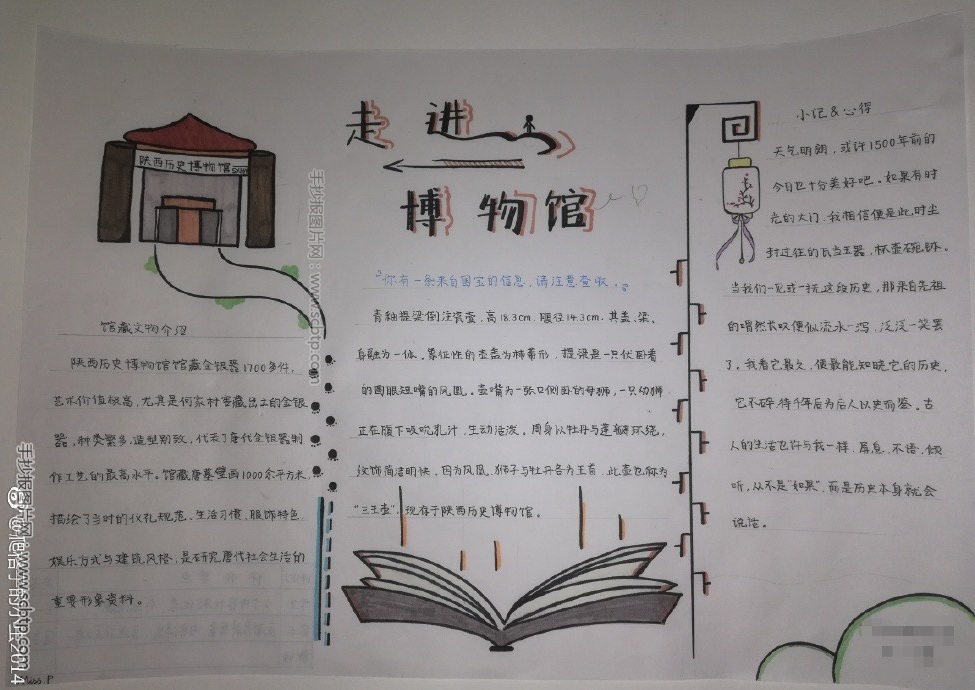 走进
博物馆
陕西历史博物馆
馆藏文物介绍
陕西历史博物馆馆藏金银器1700多件,
艺术价值极高,尤其是何家村窖藏出土的金银
器,种类繁多,造型别致,代表了唐代金银器制
作工艺的最高水平。馆藏唐墓壁画1000余平方米,
描绘了当时的仪礼规范,生活习惯,服饰特色
娱乐方式与建筑风格,是研究唐代社会生活的
重要形象资料。
“你有一条来自国宝的信息,请注意查收。”
青釉提梁倒注瓷壶,高18.3cm,腹径14.3cm,其盖、梁、
身融为一体,象征性的壶盖为柿蒂形,提梁是一只伏卧着
的圆眼短嘴的凤凰。壶嘴为一张口侧卧的母狮,一只幼狮
正在腹下吸吮乳汁,生动活泼。周身以牡丹与莲瓣环绕,
纹饰简洁明快,因为凤凰,狮子与牡丹各为王者,此壶也称为
“三王壶”,现存于陕西历史博物馆。
小记&心得
天气明朗,或许1500年前的
今日也十分美好吧。如果有时
光的大门,我相信便是此,时尘
封过往的瓦当玉器,杯壶碗
当我们一见或一抚这段历史,那来自先祖
的喟然长叹便似流水一泻,泛泛一笑罢
了。我看它最久,便最能知晓它的历史,
它不碎,待千年后为后人以史而鉴。古
人的生活也许与我一样,屏息,不语,倾
听,从不是“如果”,而是历史本身就会
说话。
手抄报图片网:www.sdptp.com
手抄报图片网:www.sdptp.com
Miss.P